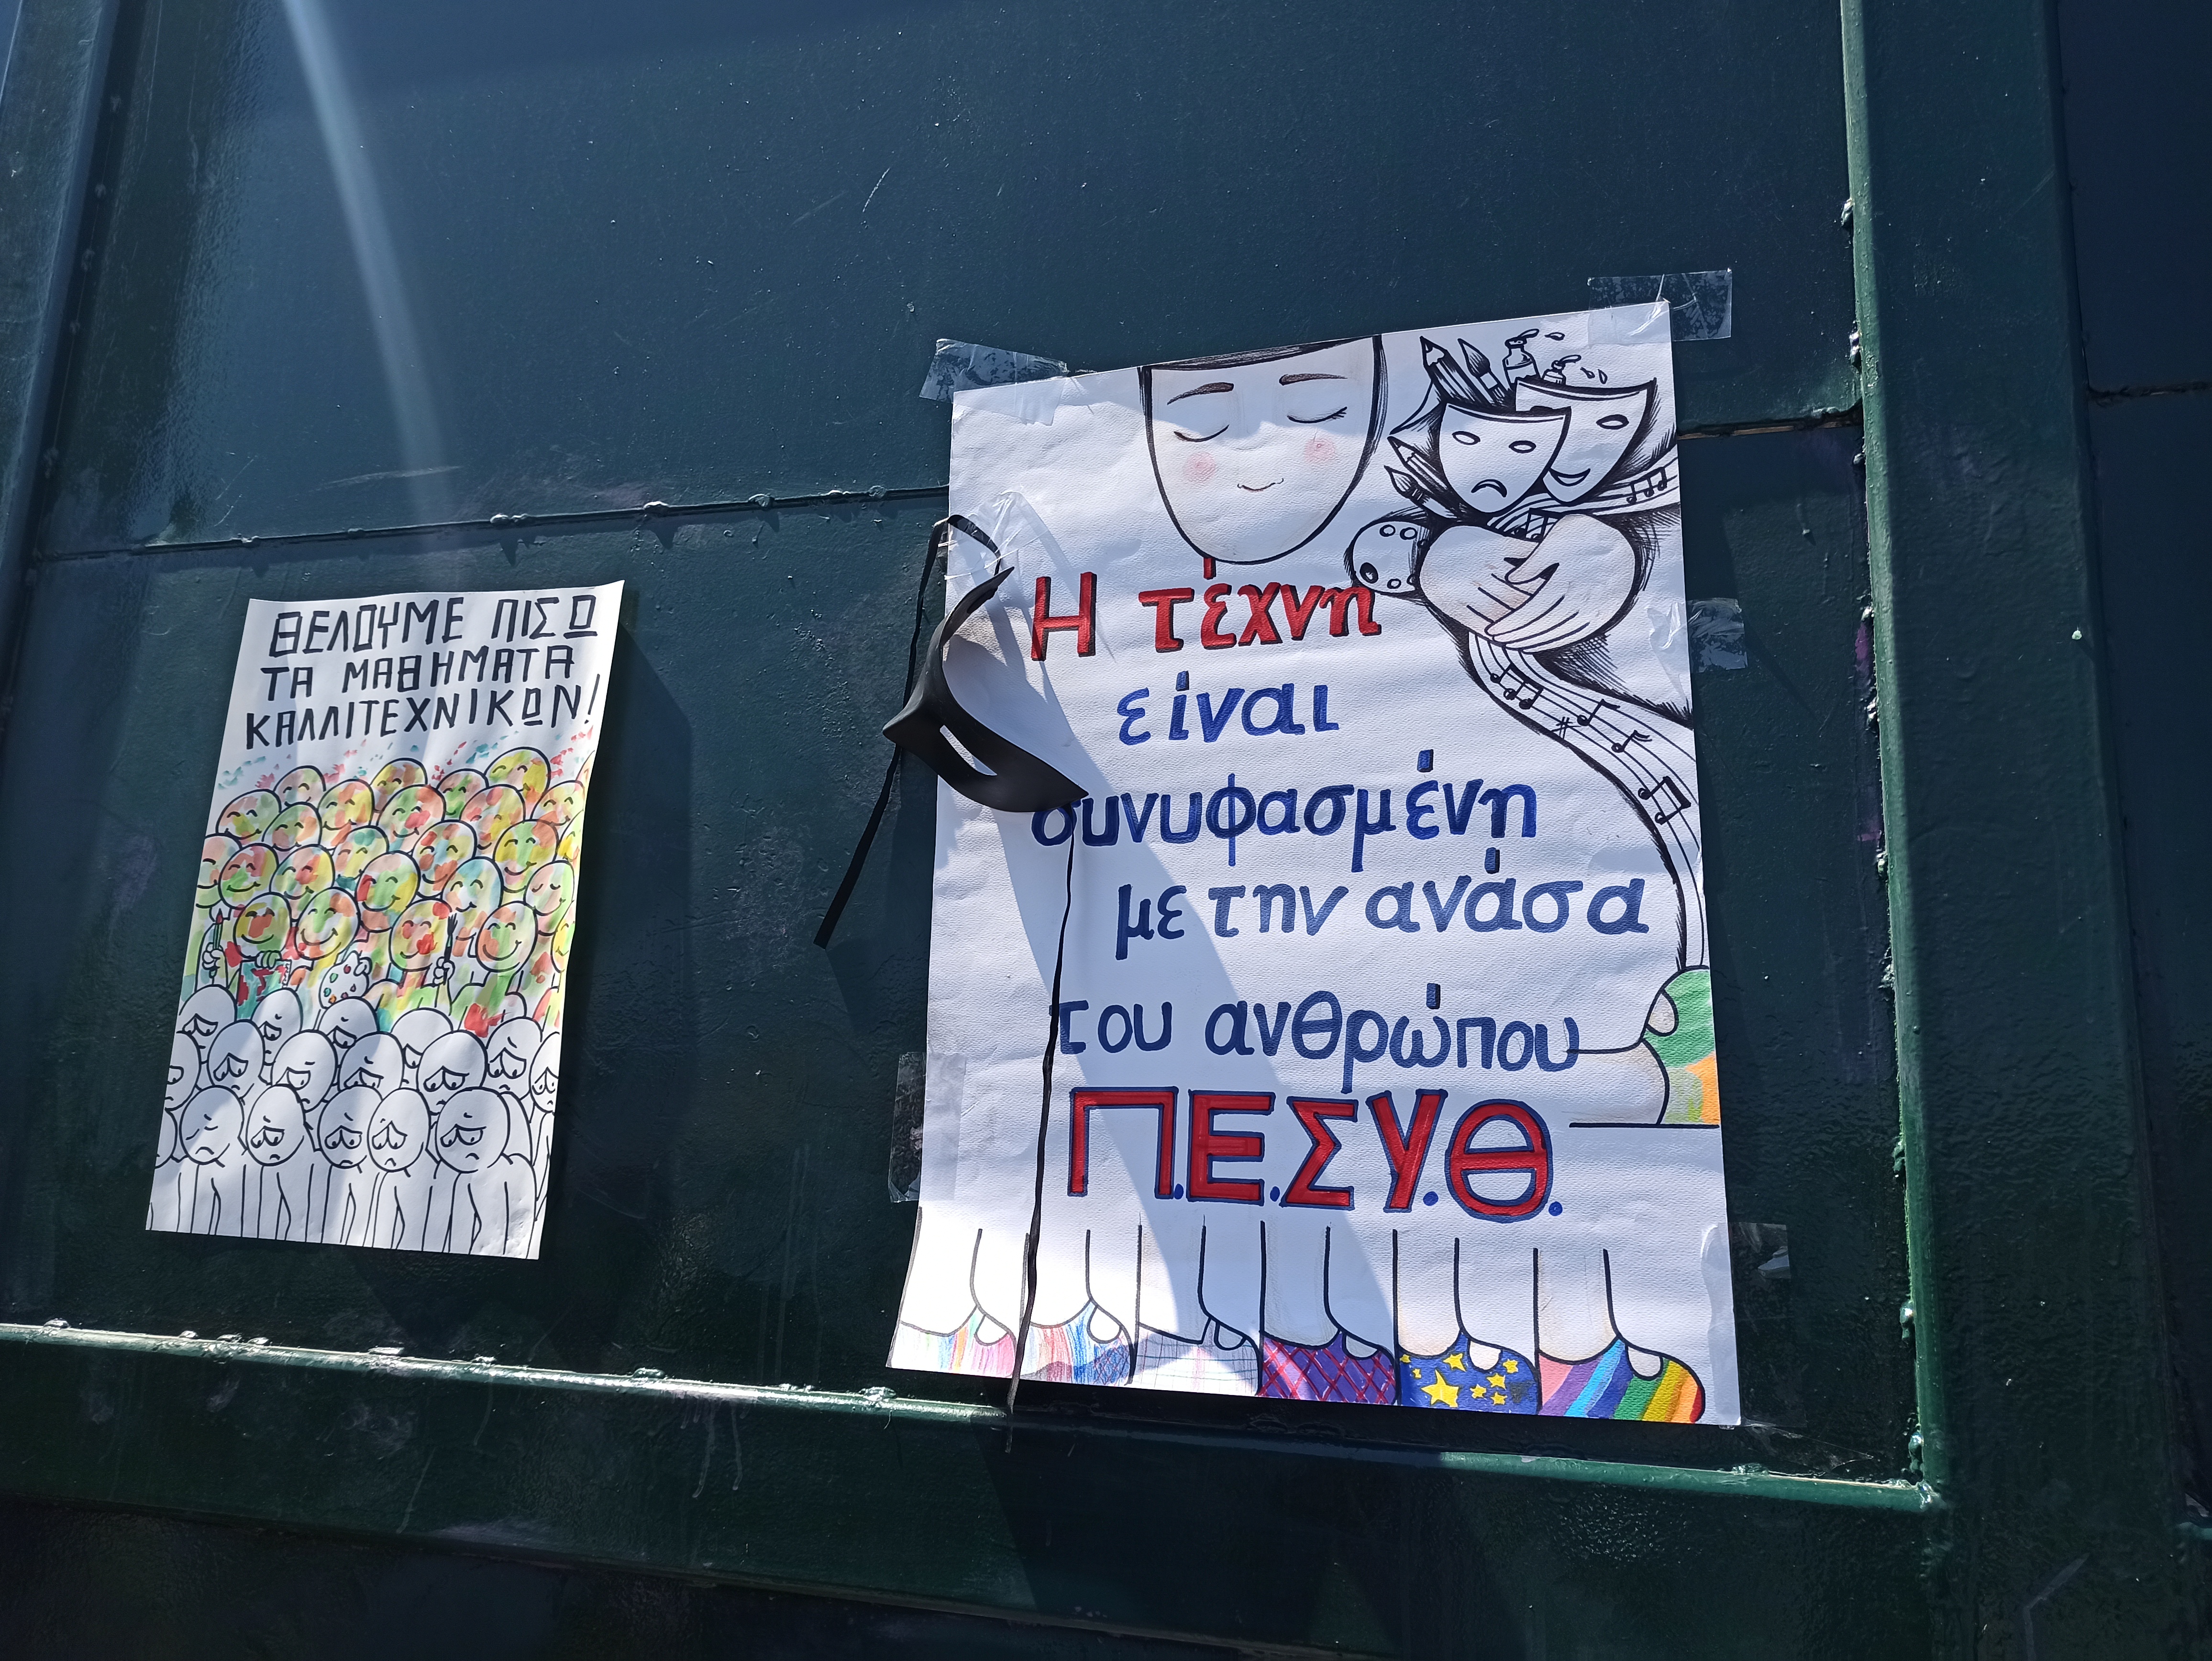 ΘΕΛΟΥΜΕ ΠΙΣΩ
ΤΑ ΜΑΘΗΜΑΤΑ
ΚΑΛΛΙΤΕΧΝΙΚΩΝ!
Η τέχνη
είναι
συνυφασμένη
με την ανάσα
του ανθρώπου
Π.Ε.ΣΥ.Θ.